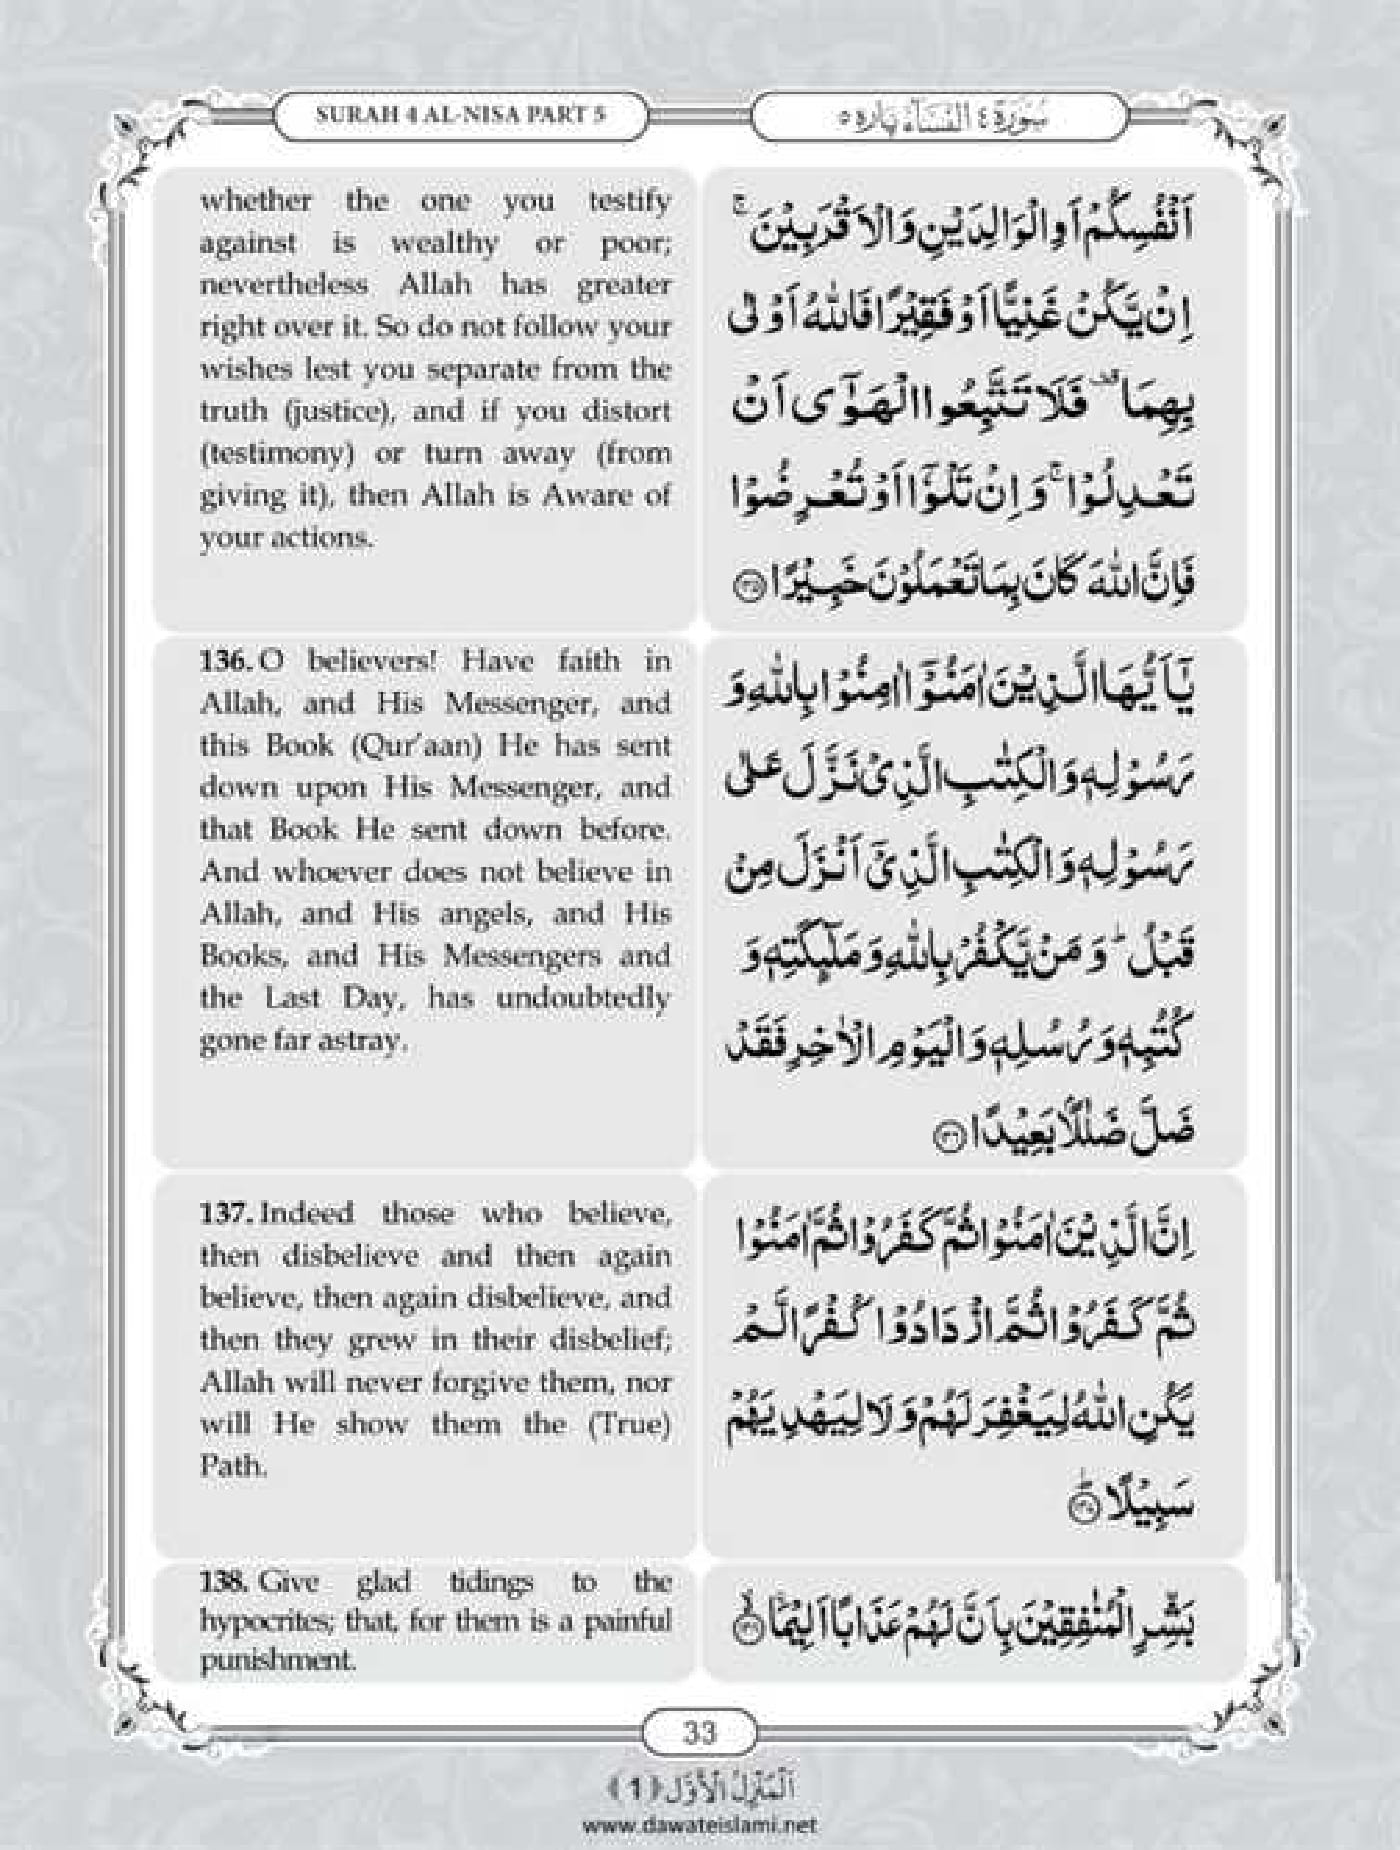 SURAH 4 AL-NISA PART 5
سُوْرَة ٤ النِّسَآء پاره ٥
whether the one you testify
against is wealthy or poor;
nevertheless Allah has greater
right over it. So do not follow your
wishes lest you separate from the
truth (justice), and if you distort
(testimony) or turn away (from
giving it), then Allah is Aware of
your actions.
اَنْفُسِكُمْ اَوِ الْوَالِدَيْنِ وَالْاَقْرَبِيْنَ ۚ
اِنْ يَّكُنْ غَنِيًّا اَوْ فَقِيْرًا فَاللّٰهُ اَوْلٰى
بِهِمَا ۫ فَلَا تَتَّبِعُوا الْهَوٰٓى اَنْ
تَعْدِلُوْا ۚ وَ اِنْ تَلْوٗۤا اَوْ تُعْرِضُوْا
فَاِنَّ اللّٰهَ كَانَ بِمَا تَعْمَلُوْنَ خَبِيْرًا ﴿۱۳۵﴾
136. O believers! Have faith in
Allah, and His Messenger, and
this Book (Qur'aan) He has sent
down upon His Messenger, and
that Book He sent down before.
And whoever does not believe in
Allah, and His angels, and His
Books, and His Messengers and
the Last Day, has undoubtedly
gone far astray.
يٰۤاَيُّهَا الَّذِيْنَ اٰمَنُوْۤا اٰمِنُوْا بِاللّٰهِ وَ
رَسُوْلِهٖ وَالْكِتٰبِ الَّذِيْ نَزَّلَ عَلٰى
رَسُوْلِهٖ وَالْكِتٰبِ الَّذِيْۤ اَنْزَلَ مِنْ
قَبْلُ ؕ وَ مَنْ يَّكْفُرْ بِاللّٰهِ وَ مَلٰٓئِكَتِهٖ وَ
كُتُبِهٖ وَ رُسُلِهٖ وَالْيَوْمِ الْاٰخِرِ فَقَدْ
ضَلَّ ضَلٰلًۢا بَعِيْدًا ﴿۱۳۶﴾
137. Indeed those who believe,
then disbelieve and then again
believe, then again disbelieve, and
then they grew in their disbelief;
Allah will never forgive them, nor
will He show them the (True)
Path.
اِنَّ الَّذِيْنَ اٰمَنُوْا ثُمَّ كَفَرُوْا ثُمَّ اٰمَنُوْا
ثُمَّ كَفَرُوْا ثُمَّ ازْدَادُوْا كُفْرًا لَّمْ
يَكُنِ اللّٰهُ لِيَغْفِرَ لَهُمْ وَ لَا لِيَهْدِيَهُمْ
سَبِيْلًا ﴿۱۳۷﴾ؕ
138. Give glad tidings to the
hypocrites; that, for them is a painful
punishment.
بَشِّرِ الْمُنٰفِقِيْنَ بِاَنَّ لَهُمْ عَذَابًا اَلِيْمَاۨ ﴿۱۳۸﴾ۙ
33
اَلْمَنْزِلُ الْاَوَّل ﴿1﴾
www.dawateislami.net